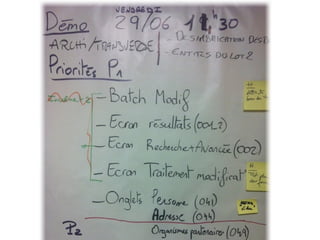 VENDREDI
Démo 29/06 11"30
ARCHI/TRANSVERSE - DESIMBRICATION DES D
- ENTITÉS DU LOT 2
Priorités P1
- Batch Modif
- Ecran résultats (001.2)
- Ecran Recherche Avancée (002)
- Ecran Traitement modificat
- Onglets Personne (041)
Adresse (044)
P2 Organismes partenaires (049)